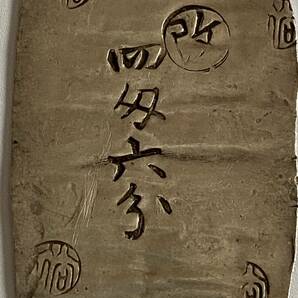 改
四匁六分